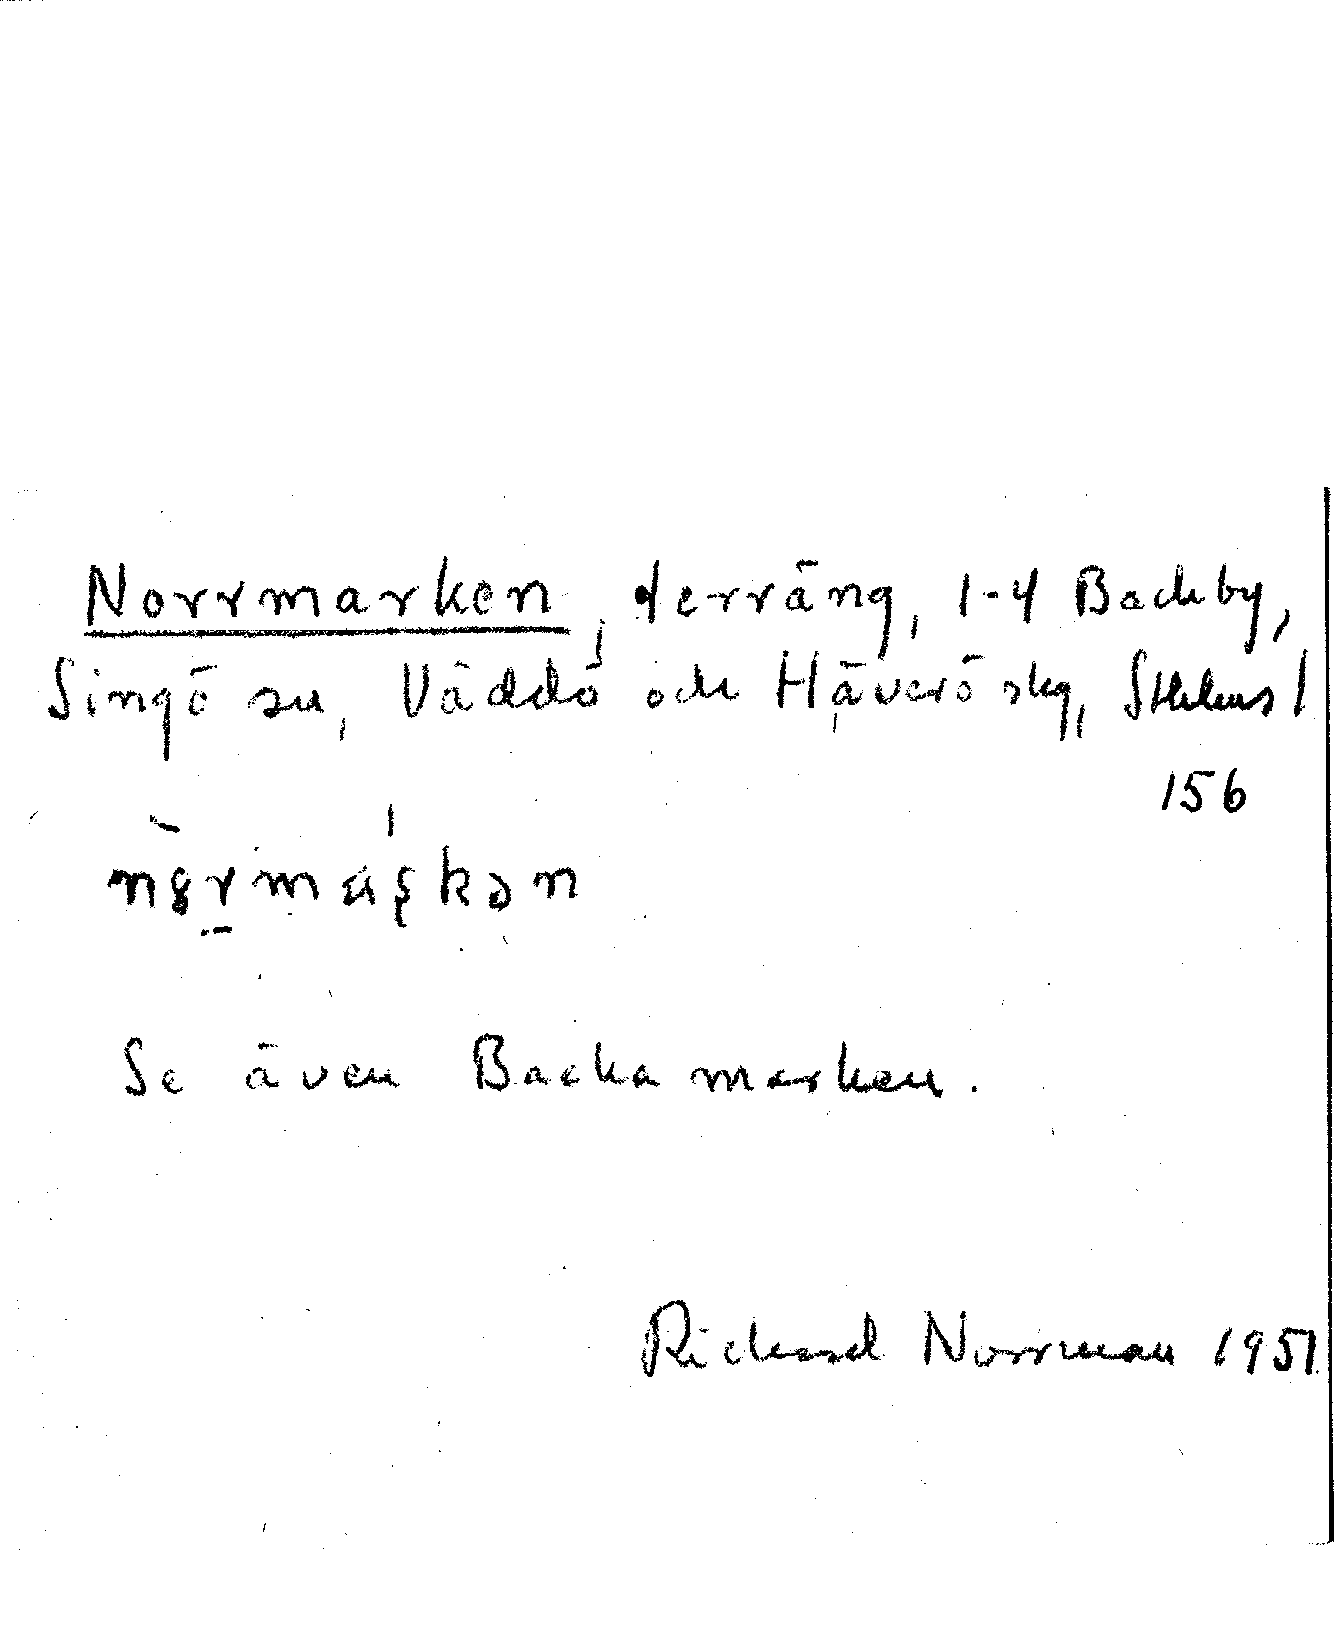 Norrmarken, terräng, 1-4 Backby,
Singö sn, Väddö och Häverö skg, Sthlms l
156
Se även Backamarken.
Richard Norrman 1951